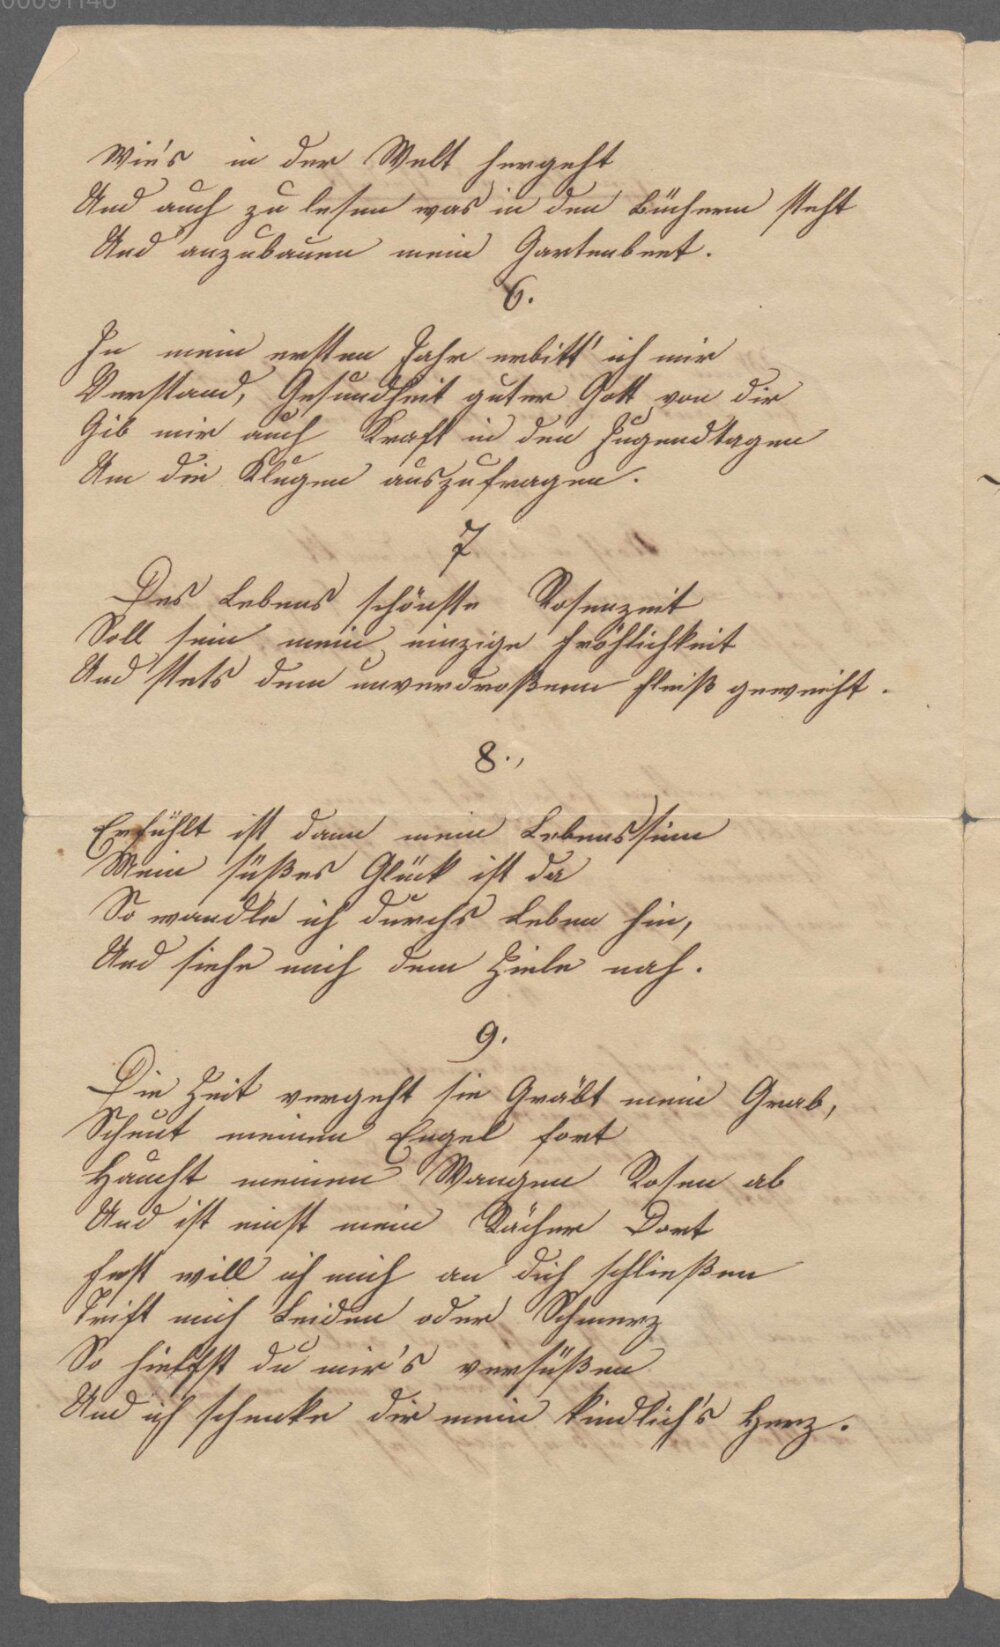 00091146
Wie's in der Welt hergeht
Und auch zu lesen was in den Büchern steht
Und anzubauen mein Gartenbeet.
6.
In mein ersten Jahr erbitt' ich mir
Verstand, Gesundheit guter Gott von dir
Gib mir auch Kraft in den Jugendtagen
Um die Klugen auszufragen.
7
Des Lebens schönste Rosenzeit
Soll sein meine einzige Fröhlichkeit
Und stets dem unverdroßenen Fleiß geweiht.
8.,
Erfühlt ist dann mein Lebenssinn
Mein süßes Glück ist da
So wandle ich durchs Leben hin,
Und siehe mich dem Ziele nah.
9.
Die Zeit vergeht sie Gräbt mein Grab,
Scheut meinen Engel fort
Haucht meinen Wangen Rosen ab
Und ist einst mein Rächer Dort
Fest will ich mich an dich schließen
Trift mich Leiden oder Schmerz
So hielfst du mir's versüßen
Und ich schenke dir mein kindlich's Herz.